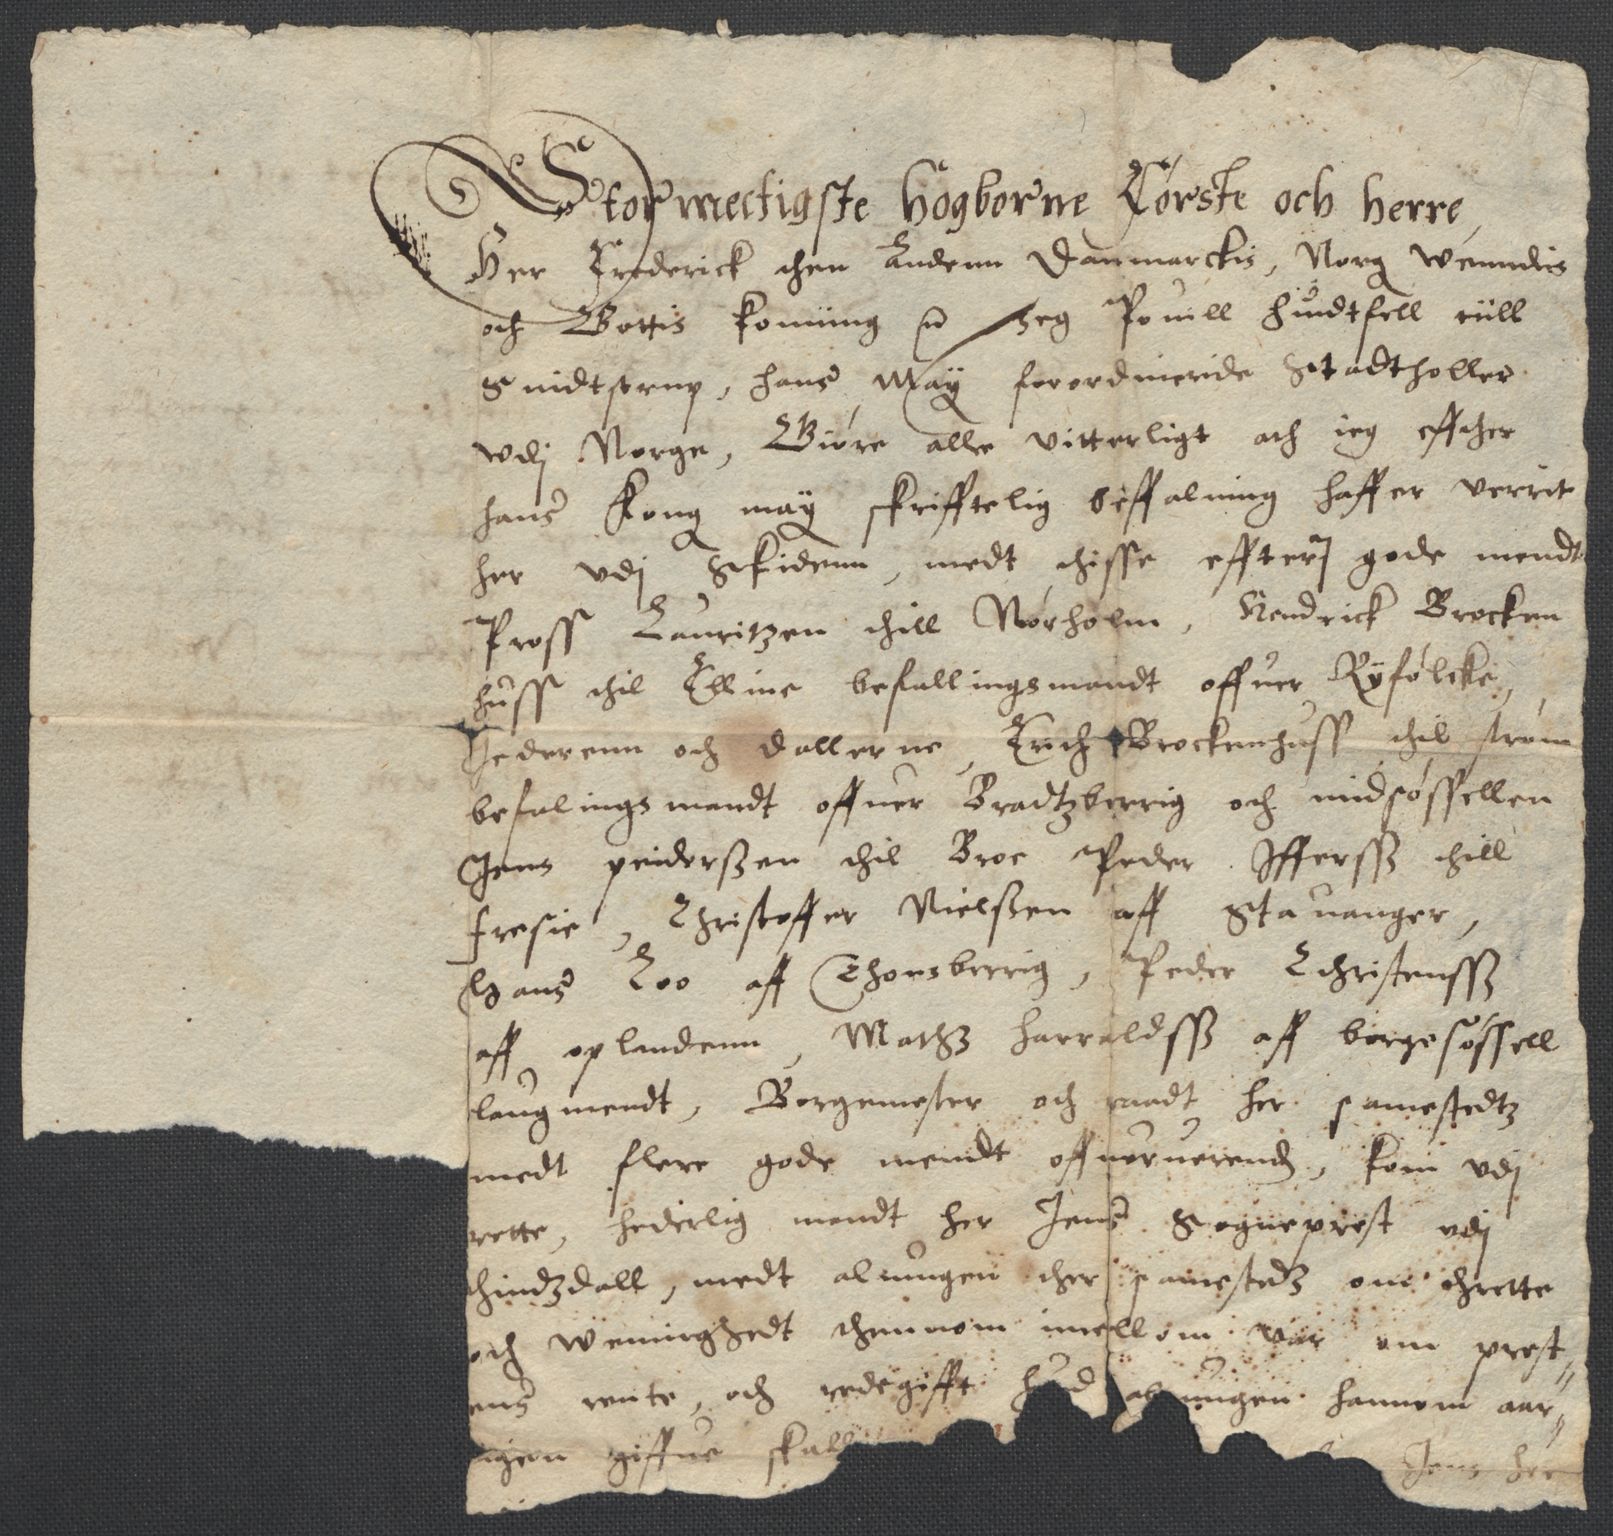 Stormectigste högborne Förste och herre,
Her Frederick then Andenn Danmarckis, Norg Wenndis
och Gottis Konning &c Jeg Pouill Huidtfelt till
Snidtstrup, hans May forordineride Stadtholler
wdj Norge, Giöre alle vitterligt ath ieg effther
hans Kong may skrifftelig beffalning haffer verrit
her vdj Skidenn, medt thisse effterᵉ gode mendt
Pross Lauritzen thill Nörholm, Hendrick Brocken
huss thil Elline befallingsmandt offuer Ryfölcke,
Jederenn och Dallerne, Erich Brockenhuss thil ström
befalingsmandt offuer Bradtzberrig och nidsösselen
Jens peiderssen thil Broe Peder Iffverss thill
fresie, Christoffer Nielssen aff Stauanger,
Hans Loo aff Thonsberrig, Peder Christenss
aff oplandenn, Matz Harraldss aff borgesössell
laugmendt, Borgemester och raadt her samestedtz
medt flere gode mendt offueruerendis, kom vdj
rette, hederlig mandt her Jens Sogneprest vdj
thindzdall, medt almugen ther samestedtz om thrette
och wennighedt thennom imellom var om prest-
ens rente, och redegifft huad almugen hannom aar-
ligen giffue skall Jens her